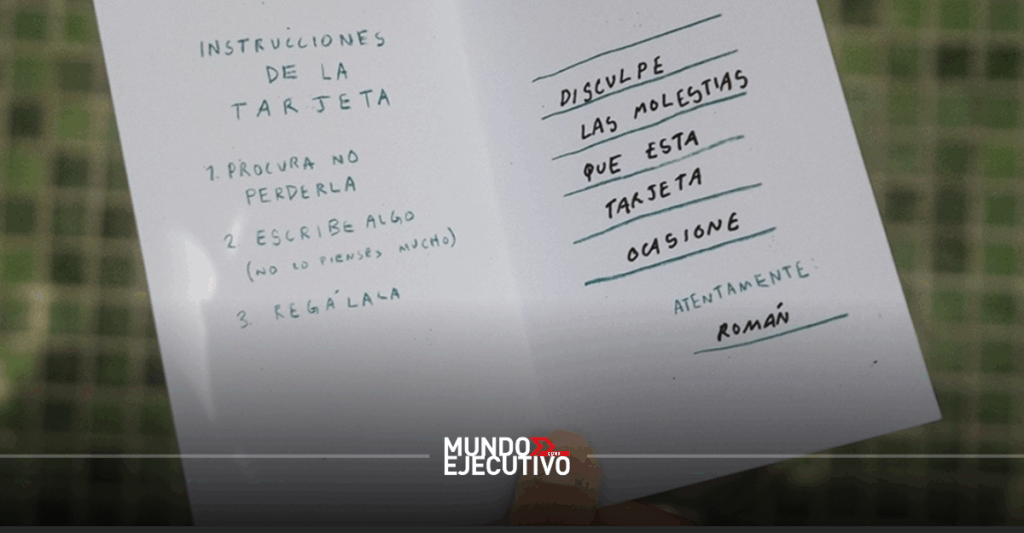 INSTRUCCIONES
DE LA
TARJETA
1. PROCURA NO
PERDERLA
2. ESCRIBE ALGO
(NO LO PIENSES MUCHO)
3. REGÁLALA
DISCULPE
LAS MOLESTIAS
QUE ESTA
TARJETA
OCASIONE
ATENTAMENTE:
ROMÁN
MUNDO
EJECUTIVO